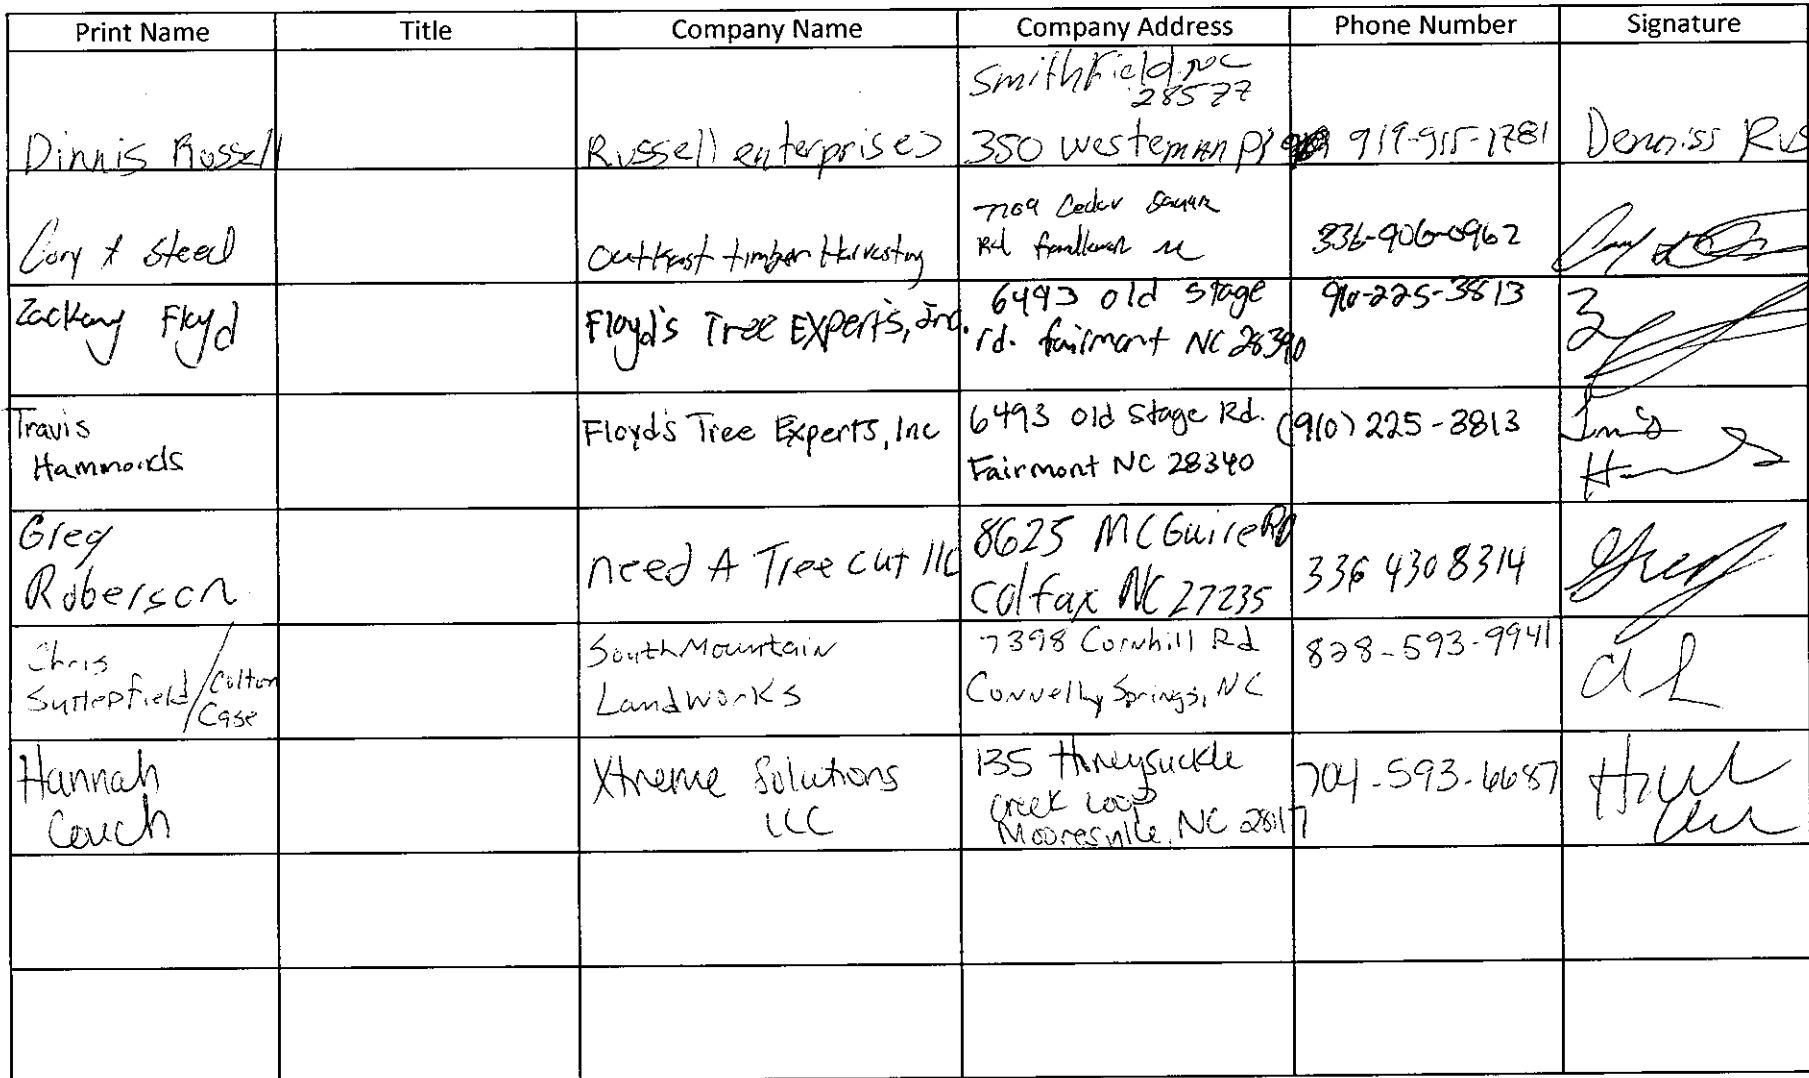 Print Name Title Company Name Company Address Phone Number Signature
Smithfield NC
28577
Dinnis Russell Russell enterprises 350 Westeman Pl 919-915-1781 Denniss Rus
Cory t Steed Outkast timber Harvesting 7709 Cedar Square
Rd 336-906-0962
Zackary Floyd Floyd's Tree Experts, Inc. 6493 old stage
rd. fairmont NC 28390 910-225-3813
Travis
Hammonds Floyd's Tree Experts, Inc 6493 old Stage Rd.
Fairmont NC 28340 (910) 225-3813
Greg
Roberson need A Tree cut llc 8625 MCGuire RD
Colfax NC 27235 336 430 8314
Chris
Sutterfield/Colton
Case South Mountain
Landworks 7398 Cornhill Rd
Connelly Springs, NC 828-593-9941
Hannah
Couch Xtreme Solutions
LLC 135 Honeysuckle
Creek Loop
Mooresville, NC 28117 704-593-6687